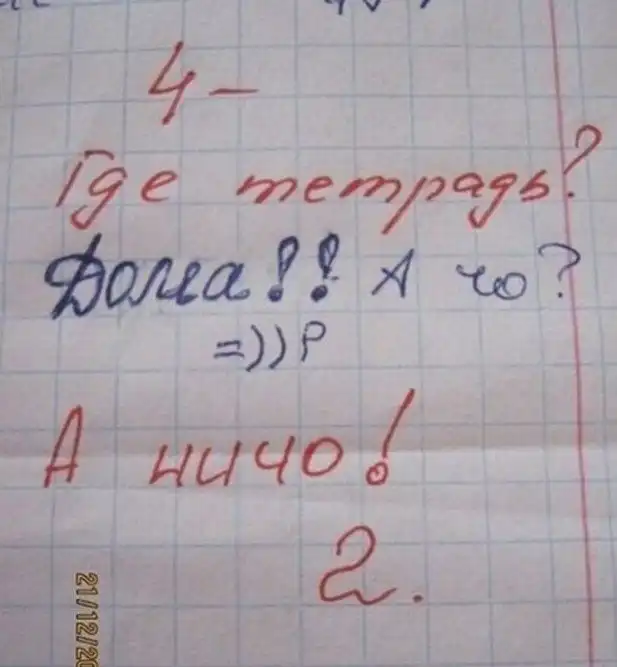 4-
Где тетрадь?
Дома!! А чо?
=))P
А ничо!
2.
21/12/20